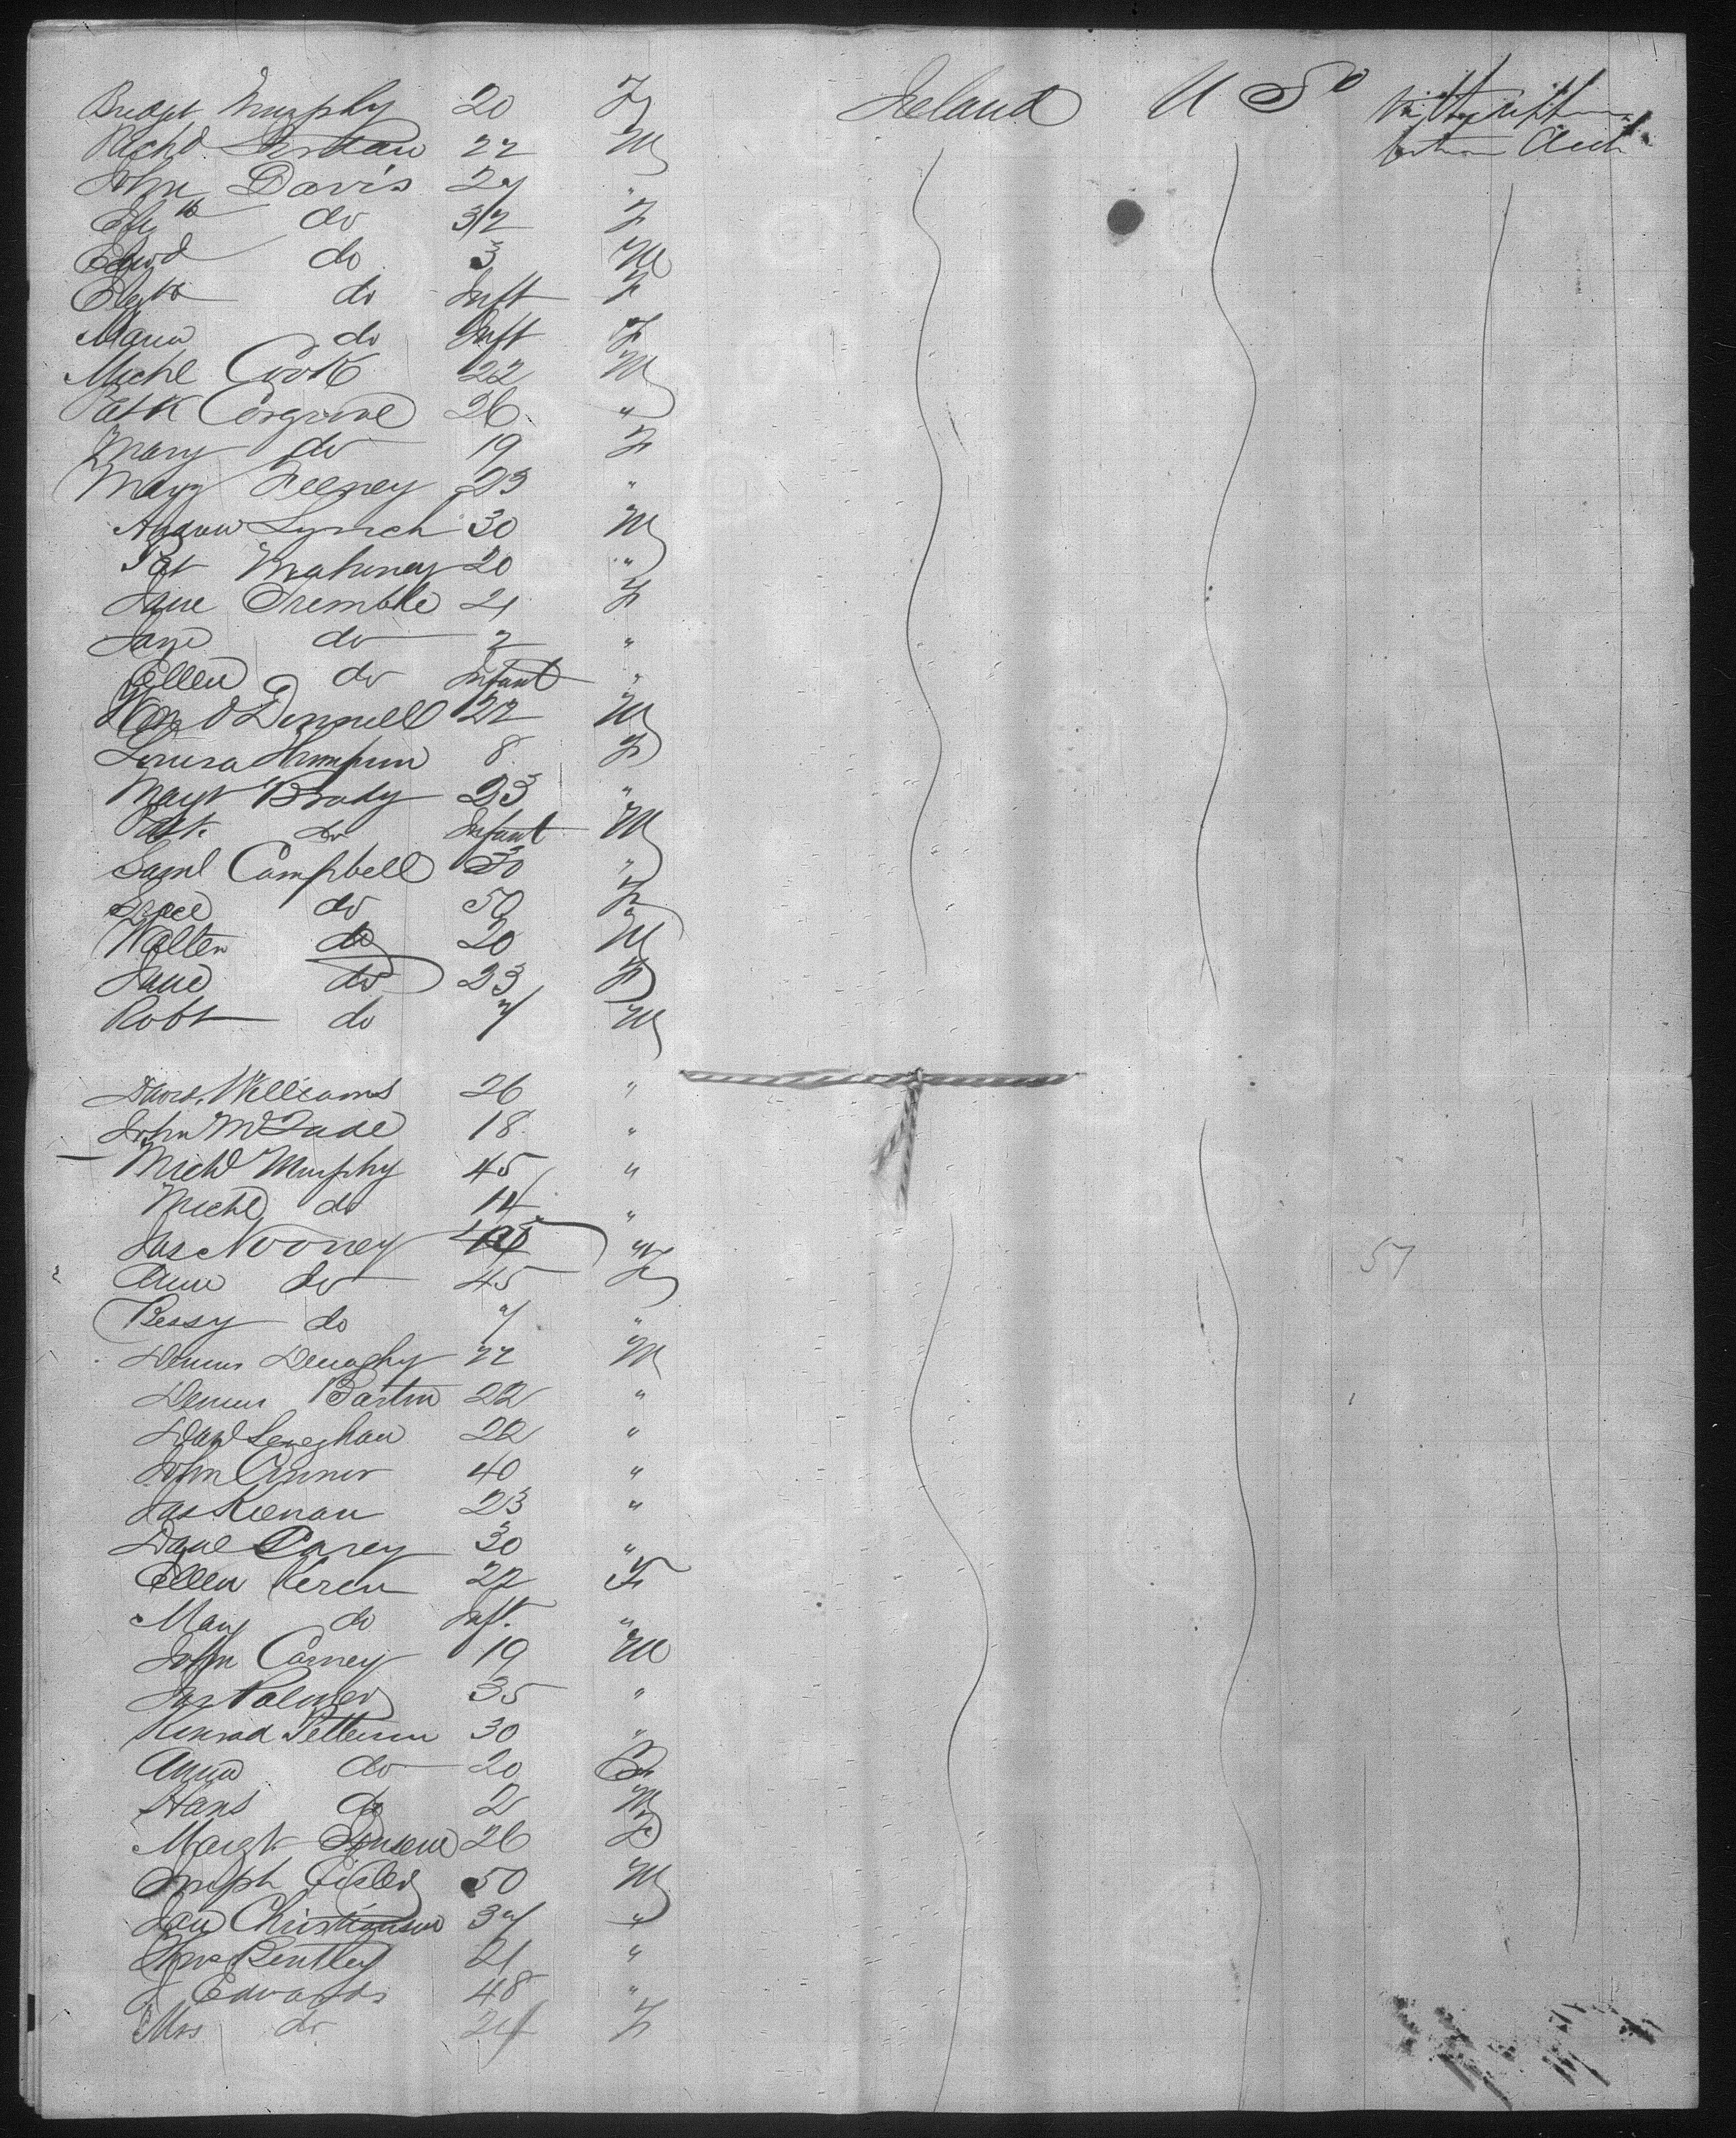 Bridget Murphy 20 F Ireland U S
Richd 22 M
John Davis 27 "
Elizth do 32 F
Edwd do 3 M
Elizth do Inft F
Maria do Inft F
Michl Cook 22 M
Patk Cosgrove 26 "
Mary do 19 F
Mary Feeney 23 "
Andrew Lynch 30 M
Pat Mahoney 20 "
Jane Tremble 21 F
Jane do 2 "
Ellen do Infant "
Wm O Donnell 22 M
Louisa Thompson 8 F
Margt Brady 23 "
Patk do Infant M
Saml Campbell 50 "
Grace do 50 F
Walter do 20 M
Jane do 23 F
Robt do 7 M
David Williams 26 "
John McDade 18 "
Michl Murphy 45 "
Michl do 14 "
Jas Nooney "
Ann do 45 F 57
Bessy do 7 "
Dennis Denaghy 22 M
Dennis Barton 22 "
Danl Leneghan 22 "
John Connor 40 "
Jas Keenan 23 "
Danl Carey 30 "
Ellen Keren 22 F
Mary do Inft. "
John Carney 19 M
Jas Palmer 35 "
Konrad Petterson 30 "
Anna do 20 F
Hans do 2 M
Margt 26 F
Joseph 50 M
Christianson 37 "
Bentley 21 "
J Edwards 48 "
Mrs do 24 F